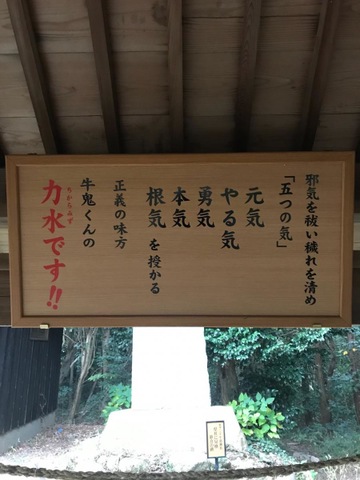 邪気を祓い穢れを清め
「五つの気」
元気
やる気
勇気
本気
根気を授かる
正義の味方
牛鬼くんの
力水です!!
ちからみず